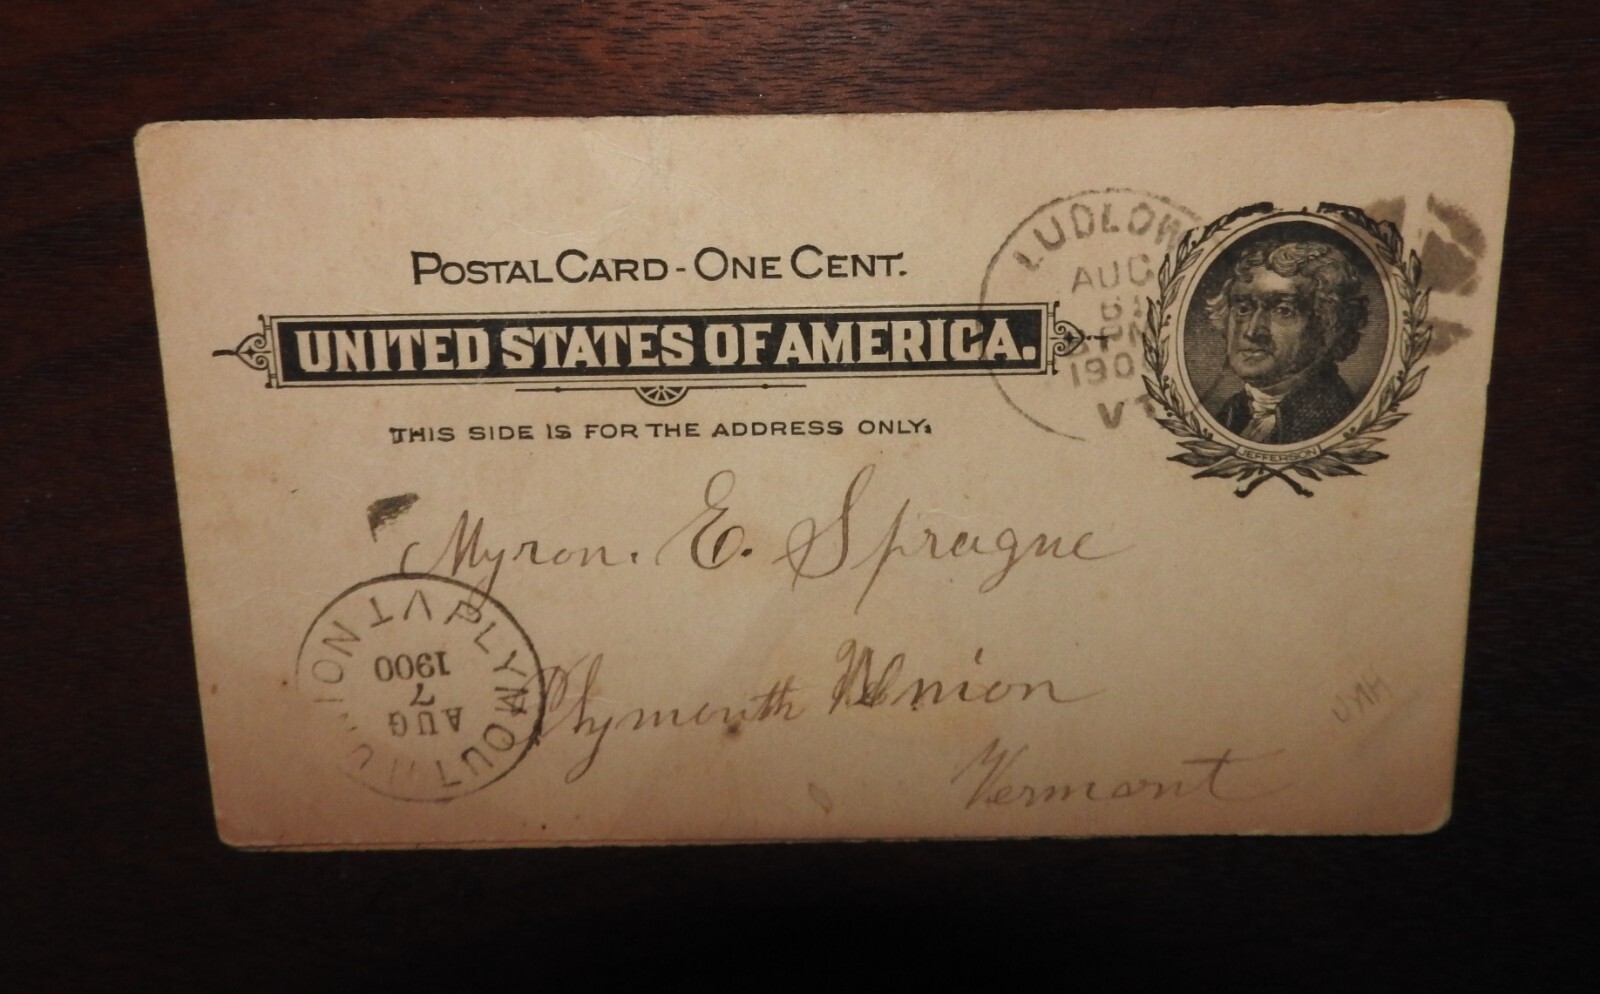 POSTAL CARD - ONE CENT.
UNITED STATES OF AMERICA.
THIS SIDE IS FOR THE ADDRESS ONLY.
LUDLOW
AUG
6
PM
190
VT
JEFFERSON
Myron. E. Sprague
Plymouth Union
Vermont
PLYMOUTH UNION VT
AUG
7
1900